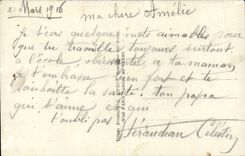 21 Mars 1916
ma chère Amélie
Je t'écri quelques mots aimables pour
que tu travaille toujours surtout
à l'école, obéissante à ta maman
je t'embrasse bien fort et te
souhaitte la santé. ton papa
qui t'aime et qui
t'oubli pas